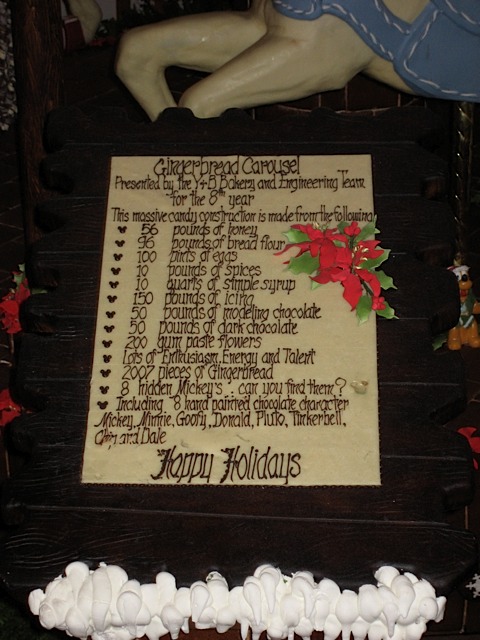 Gingerbread Carousel
Presented by the Y+B Bakery and Engineering Team
for the 8th year
This massive candy construction is made from the following
56 pounds of honey
96 pounds of bread flour
100 pints of eggs
10 pounds of spices
10 quarts of simple syrup
150 pounds of icing
50 pounds of modeling chocolate
50 pounds of dark chocolate
200 gum paste flowers
Lots of Enthusiasm, Energy and Talent
2007 pieces of Gingerbread
8 hidden Mickey's . can you find them?
Including 8 hand painted chocolate character
Mickey, Minnie, Goofy, Donald, Pluto, Tinkerbell,
Chip and Dale
Happy Holidays